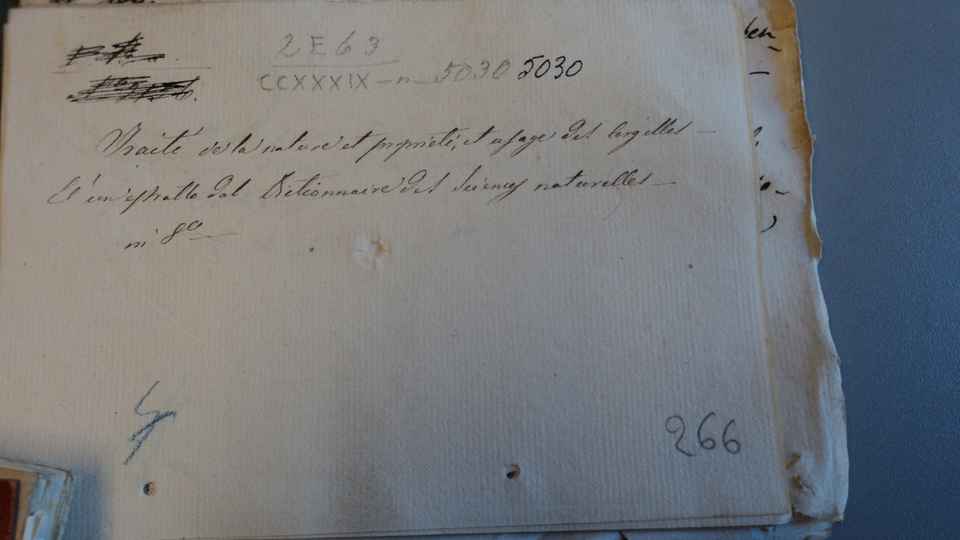 2E63
CCXXXIX - n 5030 5030
Traité de la nature et proprieté, et usage des Argilles —
È un estratto dal Dictionnaire des Sciences naturelles —
in 8°
266